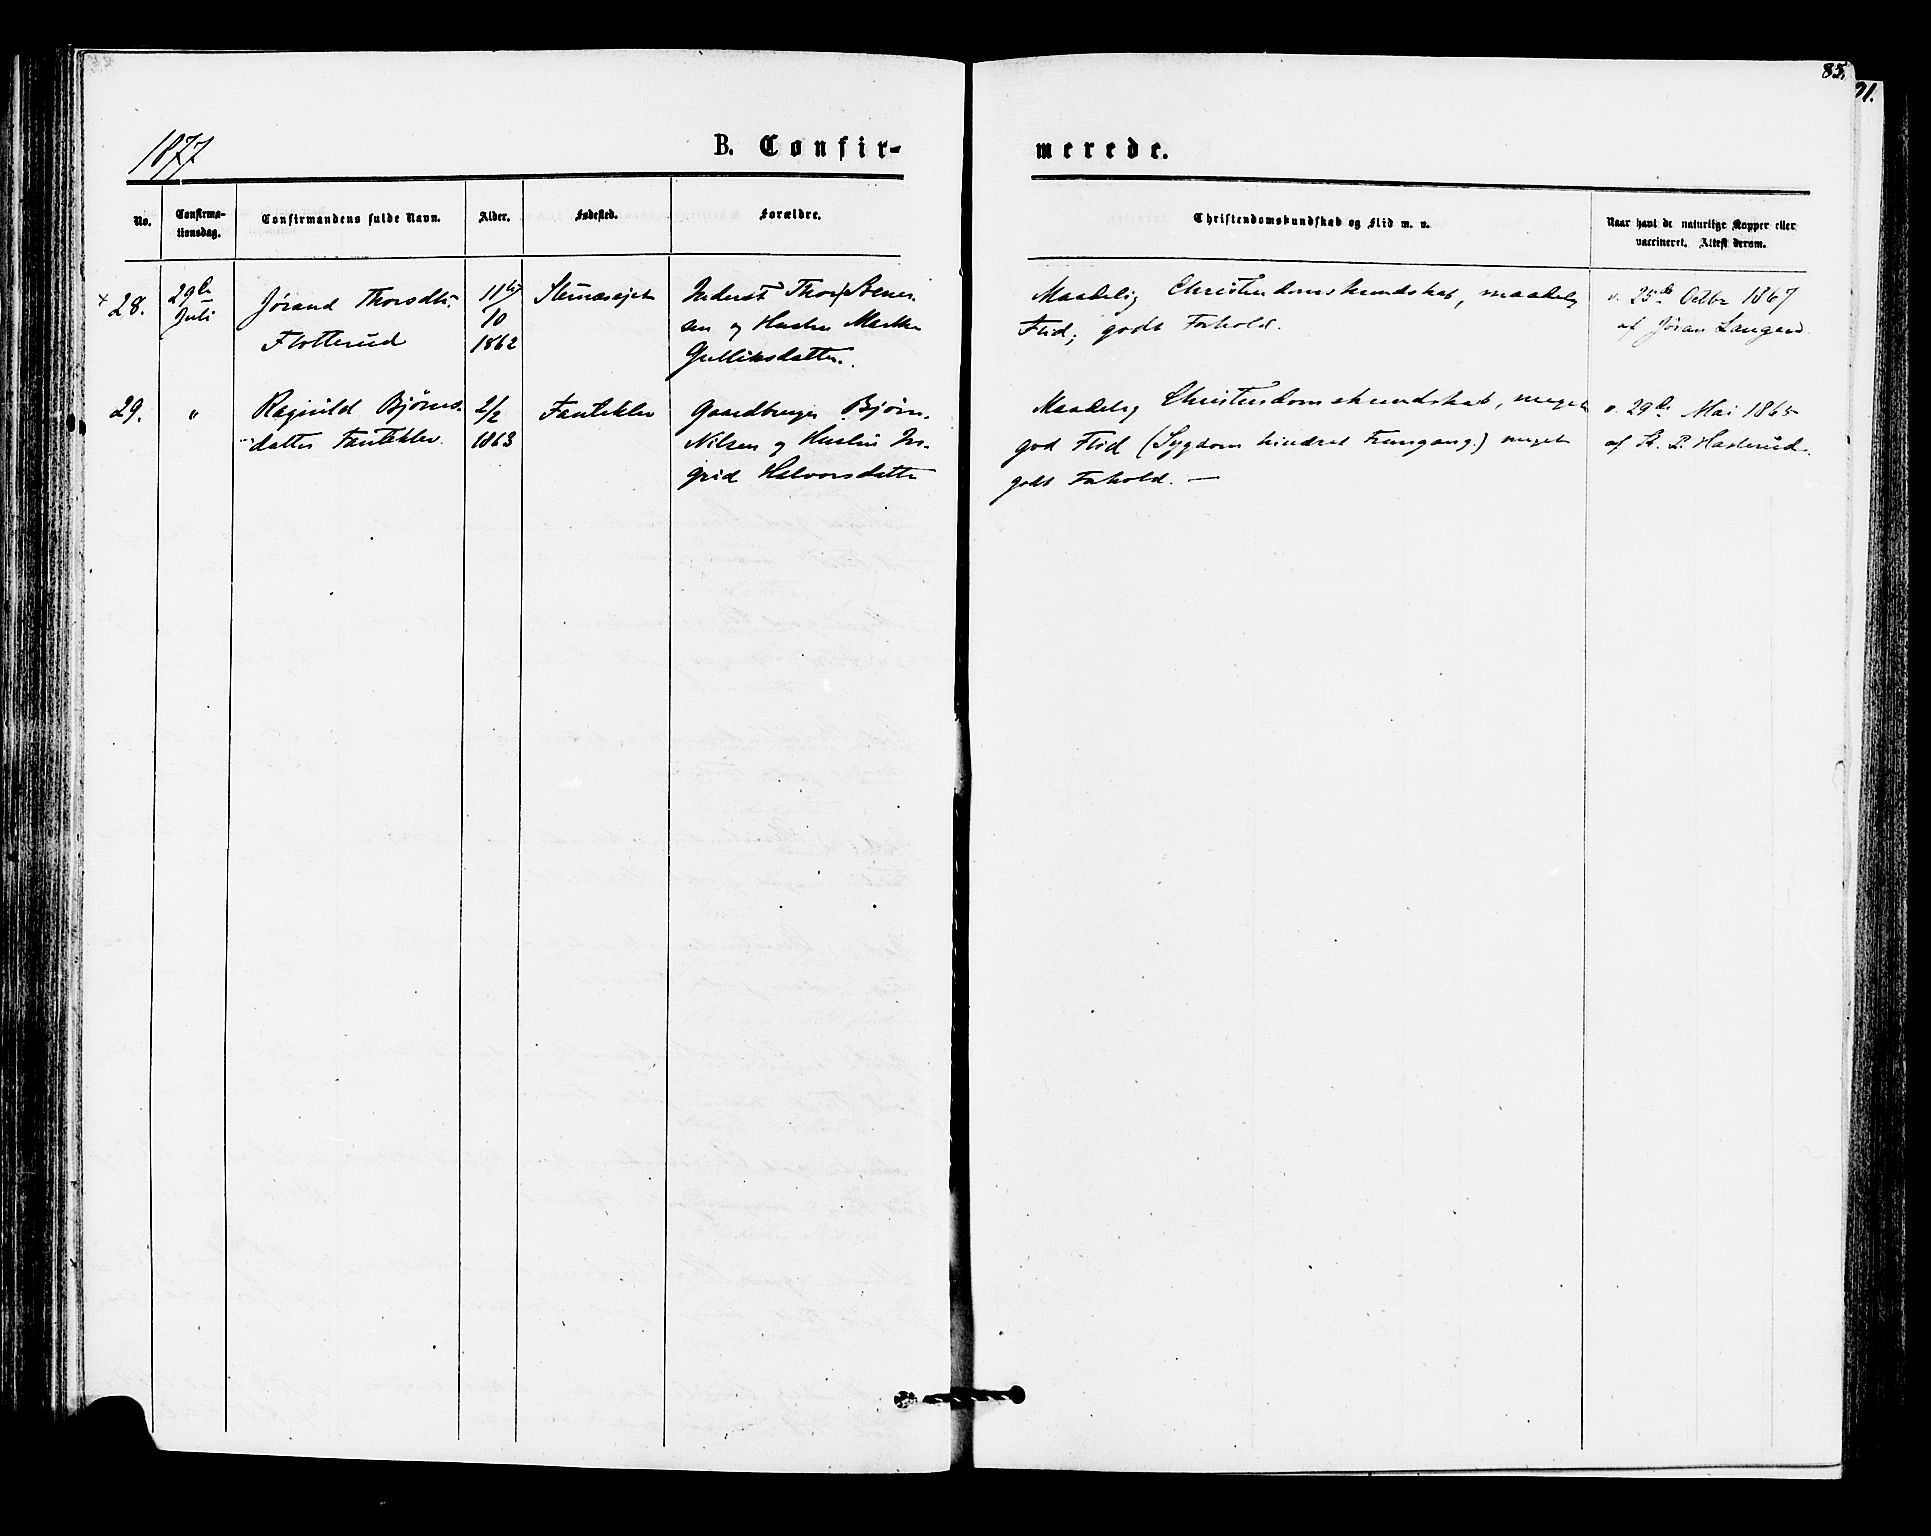 85.
91.
1877
B. Confir-
merede.
No.
Confirma-
tionsdag.
Confirmandens fulde Navn.
Alder.
Fødested.
Forældre.
Christendomskundskab og Flid m. v.
Naar havt de naturlige Kopper eller
vaccineret. Attest derom.
+ 28.
29de
Juli
Jørand Thorsdtr
Flotterud
11te
10
1862
Inderst Thor Stener-
sen og Hustru Marthe
Gulliksdatter.
Maadelig Christendomskundskab, maadelig
Flid; godt Forhold.
v. 25de Octbr 1867
af Jøran Langaard
29.
"
Ragnild Bjørns-
datter Fantekler.
2/2
1863
Fantekler
Gaardbruger Bjørn
Nilsen og Hustru In-
grid Halvorsdatter
Maadelig Christendomskundskab, meget
god Flid (Sygdom hindret Fremgang.) meget
godt Forhold. —
v. 29de Mai 1865
af P. Haslerud.